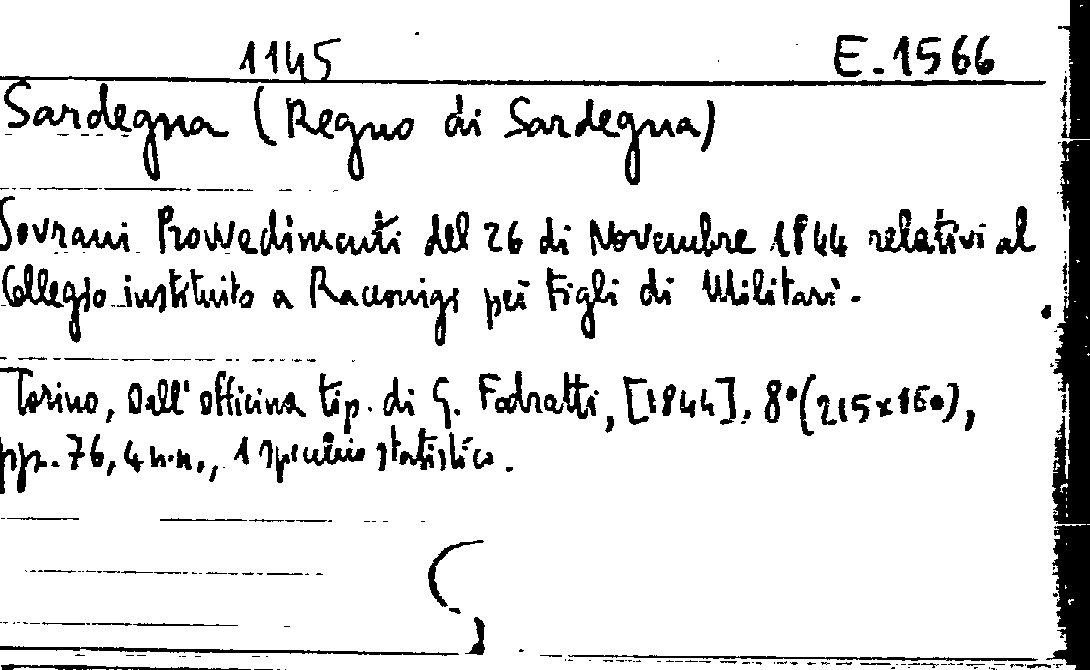 1145 E.1566
Sardegna (Regno di Sardegna)
Sovrani Provvedimenti del 26 di Novembre 1844 relativi al
Collegio instituito a Racconigi pei Figli di Militari.
Torino, Dall'officina tip. di G. Fodratti, [1844], 8°(215x160),
pp. 76, 4 n.n., 1 specchio statistico.